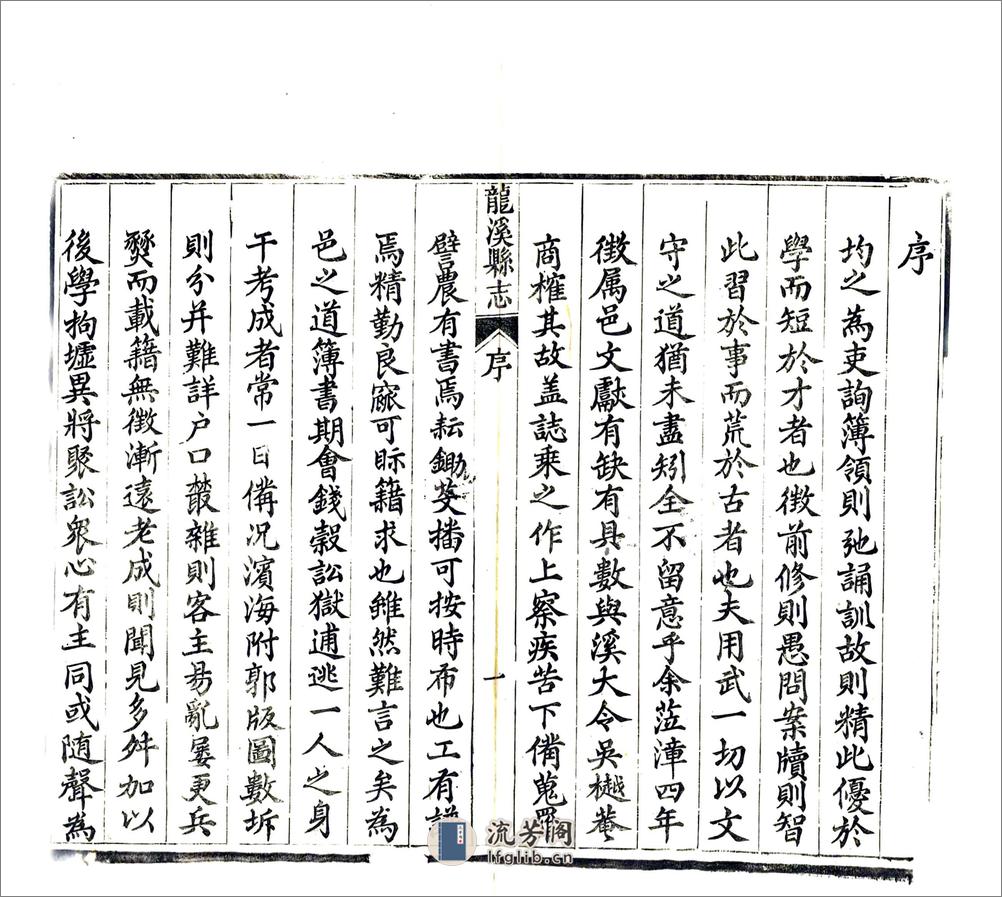 序
均之為吏詢簿領則弛誦訓故則精此優於
學而短於才者也徴前修則愚問案牘則智
此習於事而荒於古者也夫用武一切以文
守之道猶未盡矧全不留意乎余蒞漳四年
徴属邑文獻有缺有具數與溪大令吳樾菴
商榷其故盖誌乘之作上察疾苦下備蒐羅
龍溪縣志
序
一
譬農有書焉耘鋤芟播可按時布也工有譜
焉精勤良窳可眎籍求也雖然難言之矣為
邑之道簿書期會錢穀訟獄逋逃一人之身
干考成者常一日備况濱海附郭版圖數坼
則分并難詳户口叢雜則客主易亂屢更兵
燹而載籍無徴漸遠老成則聞見多舛加以
後學拘墟異將聚訟衆心有主同或随聲為
流芳阁
lfglib.cn